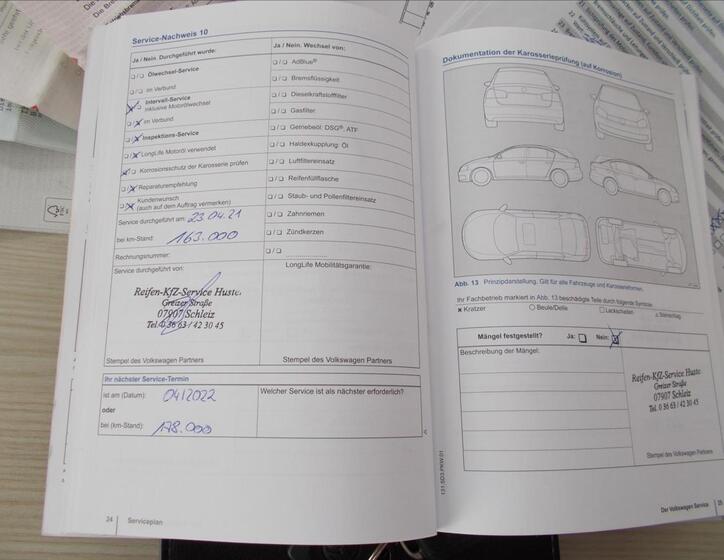 Service-Nachweis 10
Ja / Nein. Durchgeführt wurde:
Ölwechsel-Service
im Verbund
Intervall-Service
inklusive Motorölwechsel
im Verbund
Inspektions-Service
LongLife Motoröl verwendet
Korrosionsschutz der Karosserie prüfen
Reparaturempfehlung
Kundenwunsch
(auch auf dem Auftrag vermerken)
Service durchgeführt am: 23.04.21
bei km-Stand: 163.000
Rechnungsnummer:
Service durchgeführt von:
Reifen-KfZ-Service Huste
Greizer Straße
07907 Schleiz
Tel. 0 36 63 / 42 30 45
Stempel des Volkswagen Partners
Ja / Nein. Wechsel von:
AdBlue®
Bremsflüssigkeit
Dieselkraftstofffilter
Gasfilter
Getriebeöl: DSG®, ATF
Haldexkupplung: Öl
Luftfiltereinsatz
Reifenfüllflasche
Staub- und Pollenfiltereinsatz
Zahnriemen
Zündkerzen
LongLife Mobilitätsgarantie:
Stempel des Volkswagen Partners
Ihr nächster Service-Termin
ist am (Datum): 04/2022
oder
bei (km-Stand): 178.000
Welcher Service ist als nächster erforderlich?
24 Serviceplan
Dokumentation der Karosserieprüfung (auf Korrosion)
Abb. 13 Prinzipdarstellung. Gilt für alle Fahrzeuge und Karosserieformen.
Ihr Fachbetrieb markiert in Abb. 13 beschädigte Teile durch folgende Symbole:
Kratzer Beule/Delle Lackschaden Steinschlag
Mängel festgestellt? Ja: Nein:
Beschreibung der Mängel:
Reifen-KfZ-Service Huste
Greizer Straße
07907 Schleiz
Tel. 0 36 63 / 42 30 45
Stempel des Volkswagen Partners
131.5D3.PKW.01
Der Volkswagen Service